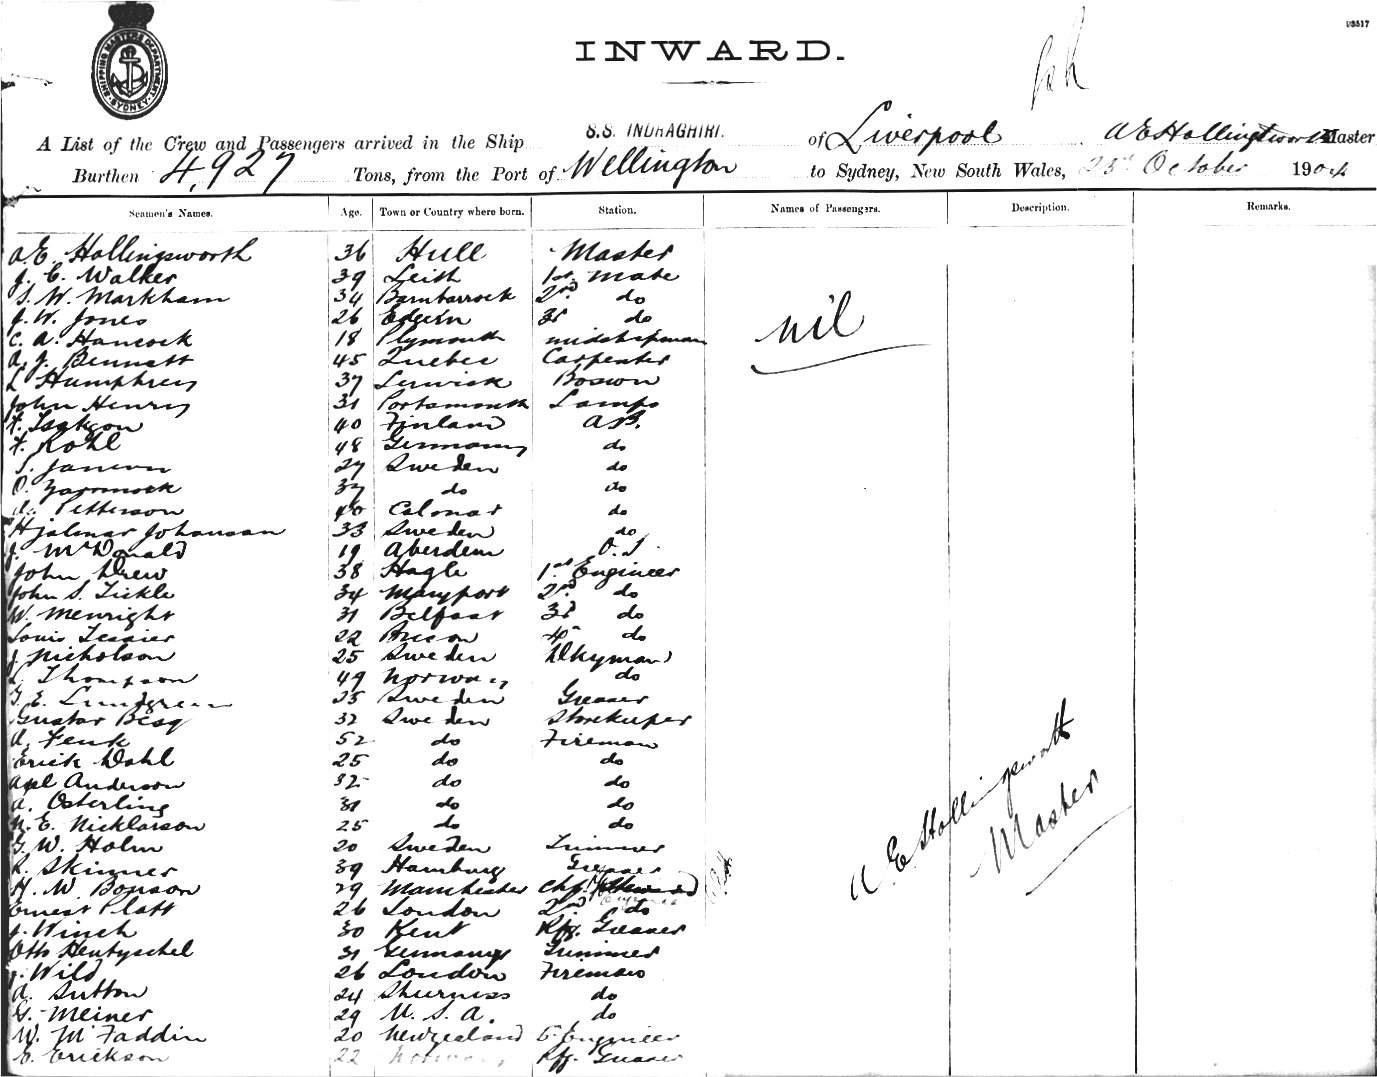 93517
SHIPPING MASTERS DEPARTMENT SYDNEY
INWARD.
A List of the Crew and Passengers arrived in the Ship S.S. INDRAGHIRI. of Liverpool A E Hollingsworth Master
Burthen 4,927 Tons, from the Port of Wellington to Sydney, New South Wales, 23rd October 1904
Seamen's Names. Age. Town or Country where born. Station. Names of Passengers. Description. Remarks.
A.E. Hollingsworth 36 Hull Master
J. C. Walker 39 Leith 1st Mate
S. W. Markham 34 Barnbarrock 2nd do
J. W. Jones 26 Elgin 3rd do
nil
C. A. Hancock 18 Plymouth midshipman
A. J. Bennett 45 Quebec Carpenter
L Humphrey 37 Lerwick Boswn
John Henry 31 Portsmouth Lamps
F. Isakson 40 Finland A.B.
F. Kohl 48 Germany do
S. Jansen 27 Sweden do
O. 37 do do
Petterson 40 Calonar do
Hjalmar Johansan 33 Sweden do
J. McDonald 19 Aberdeen O.S.
John Drew 38 Hagle 1st Engineer
John S. Tickle 34 Maryport 2nd do
W. Menright 31 Belfast 3rd do
Louis Tessier 22 4th do
J. Nicholson 25 Sweden Dkyman
L. Thompson 49 Norway do
G. E. Lundgreen 25 Sweden Greaser
Gustav Besq 32 Sweden Storekeeper
A. Fenk 52 do Fireman
Erick Dahl 25 do do
Axel Anderson 32 do do
A. Osterling 31 do do
N. E. Nicklarson 25 do do
G. W. Holm 20 Sweden Trimmer
R. Skinner 39 Hamburg Greaser
H. W. Bonson 29 Manchester Chf.
Ernest Platt 26 London 2nd do
J. Winch 30 Kent Rfg. Greaser
Otto Hentyschel 31 Germany Trimmer
J. Wild 26 London Fireman
A. Sutton 24 Shurniss do
G. Meiner 29 U.S.A. do
W. McFaddin 20 New Zealand 5th Engineer
E. Erickson 22 Norway Rfg. Greaser
A E Hollingsworth
Master